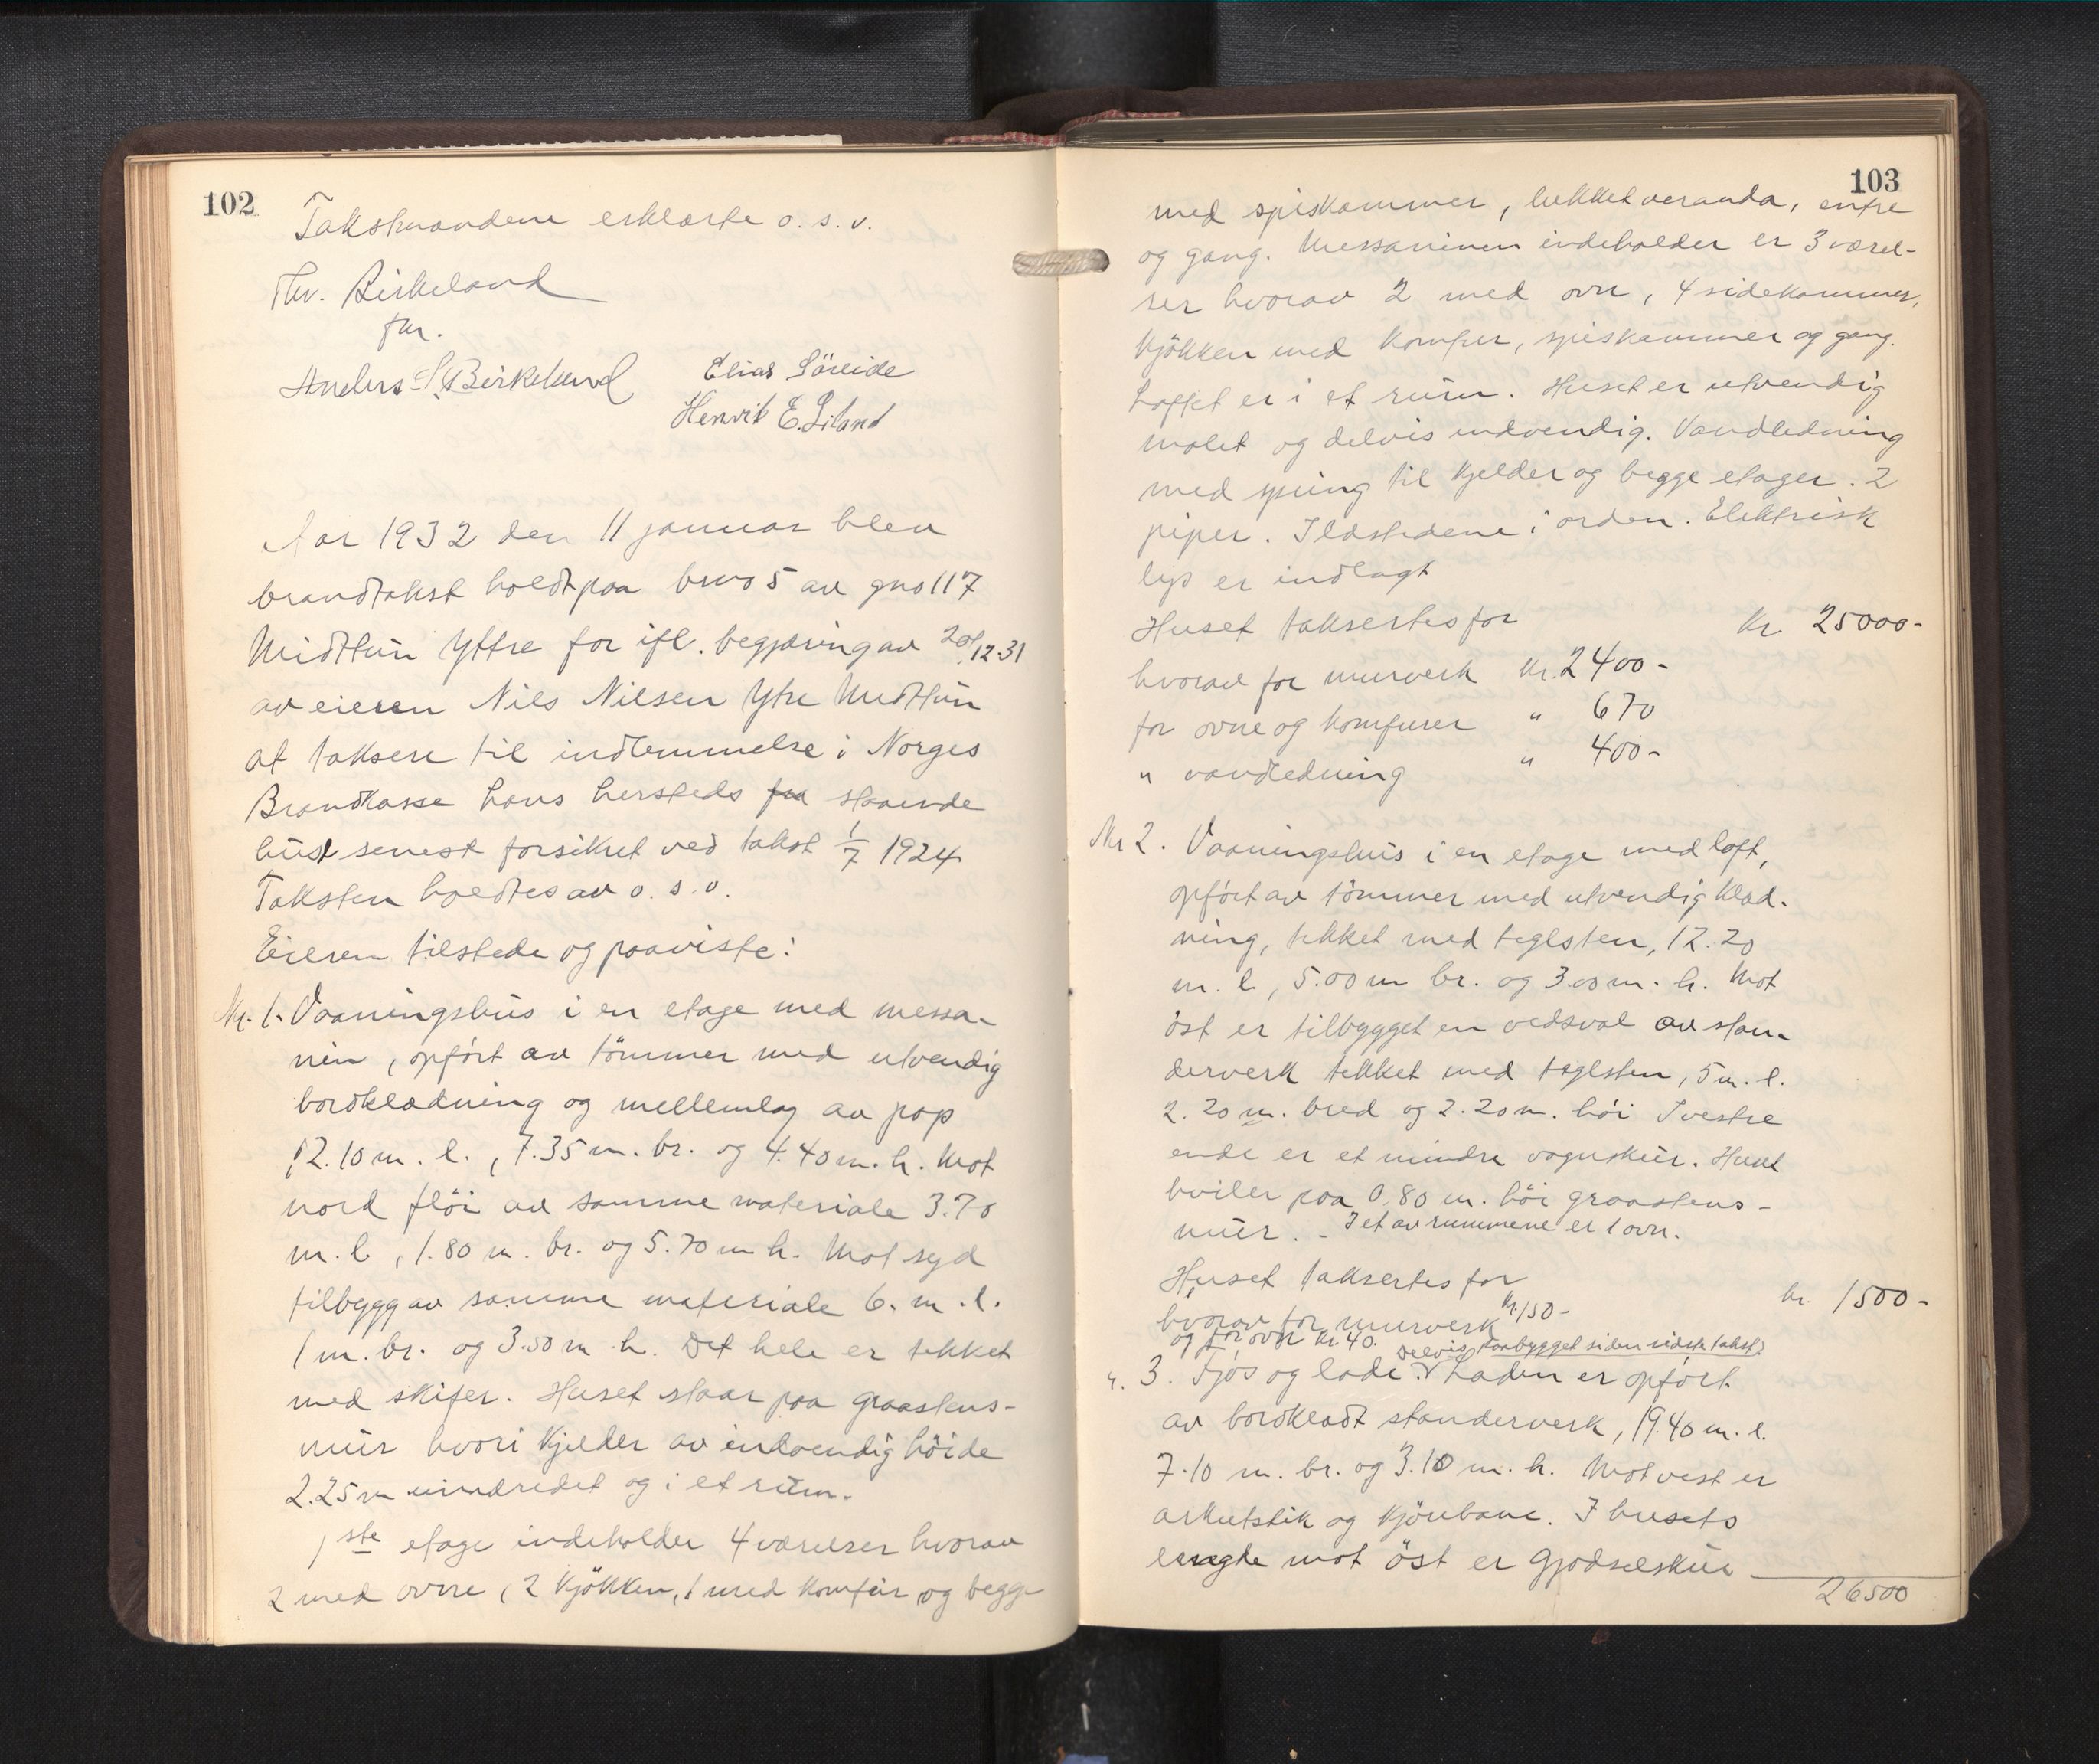 102
Takstmændene erklærte o. s. v.
Thv. Birkeland
fm.
Anders S. Birkeland
Elias Söreide
Henrik E. Liland
Aar 1932 den 11 januar blev
brandtakst holdt paa bno 5 av gno 117
Midttun Yttre for ifl. begjæring av 20/12.31
av eieren Nils Nilsen Ytre Midttun
at taksere til indlemmelse i Norges
Brandkasse hans hersteds staaende
hus senest forsikret ved takst 1/7 1924
Taksten holdtes av o. s. v.
Eieren tilstede og paaviste:
Nr. 1. Vaaningshus i en etage med messa-
nin, opfört av tömmer med utvendig
bordklædning og mellemlag av pap
12.10 m. l., 7.35 m. br. og 4.40 m. h. Mot
nord flöi av samme materiale 3.70
m. l, 1.80 m. br. og 5.70 m h. Mot syd
tilbygg av samme materiale 6. m. l.
1 m. br. og 3.50 m h. Det hele er tekket
med skifer. Huset staar paa graastens-
mur hvori kjelder av indvendig höide
2.25 m uindredet og i et rum.
1ste etage indeholder 4 værelser hvorav
2 med ovne, 2 kjökken, 1 med komfur og begge
103
med spiskammer, lukket veranda, entre
og gang. Messaninen indeholder er 3 værel-
ser hvorav 2 med ovn, 4 sidekammer,
kjökken med komfur, spiskammer og gang.
Loftet er i et rum. Huset er utvendig
malet og delvis indvendig. Vandledning
med spring til kjelder og begge etager. 2
piper. Ildstedene i orden. Elektrisk
lys er indlagt
Huset taksertes for kr 25000-
hvorav for murverk kr. 2400-
for ovne og komfurer " 670
" vandledning " 400-
Nr 2. Vaaningshus i en etage med loft,
opfört av tömmer med utvendig klæd-
ning, tekket med teglsten, 12.20
m. l, 5.00 m br. og 3.00 m. h. Mot
öst er tilbygget en vedsval av stan-
derverk tekket med teglsten, 5 m. l.
2.20 m. bred og 2.20 m. höi I vestre
ende er et mindre vognskur. Huset
hviler paa 0,80 m. höi graastens-
mur. - I et av rummene er 1 ovn.
Huset taksertes for kr. 1500-
hvorav for murverk kr. 150-
og for ovn kr. 40.
delvis paabygget siden sidste takst.
" 3. Fjös og lade. Laden er opfört
av bordklædt standerverk, 19.40 m. l.
7.10 m. br. og 3.10 m. h. Mot vest er
arkutstik og kjörebane. I husets
længde mot öst er gjödselskur
26500